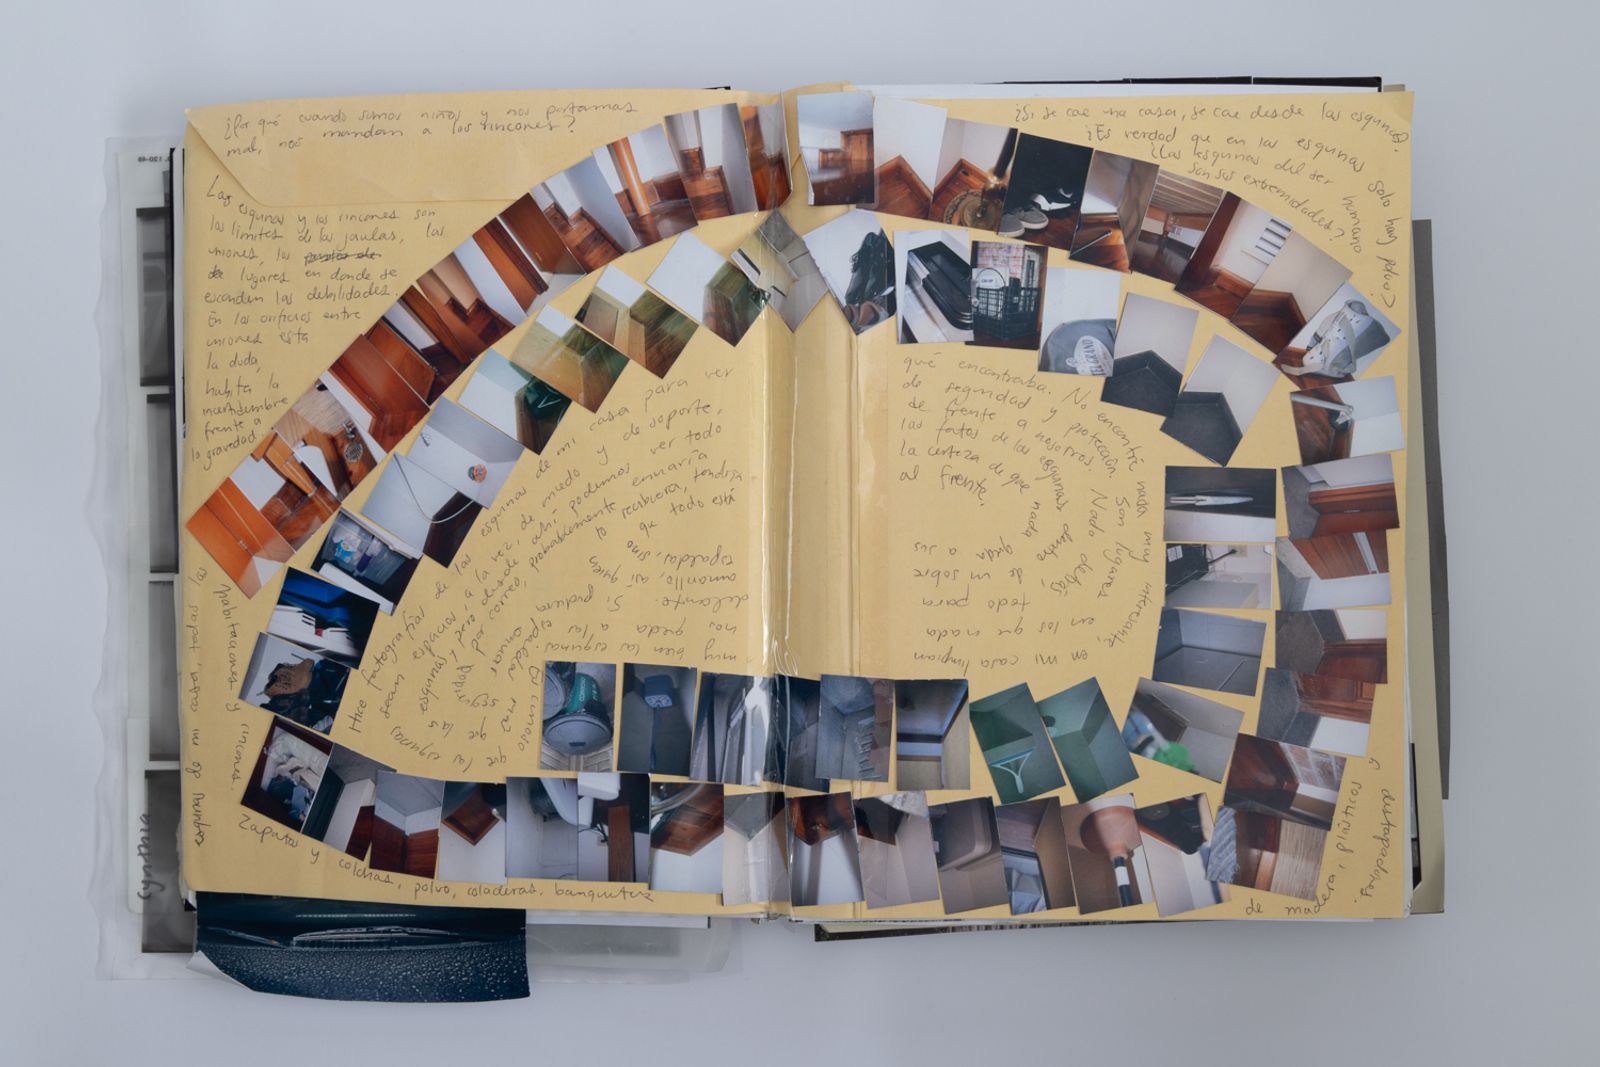 ¿Por qué cuando somos niños y nos portamos
mal, nos mandan a los rincones?
Las esquinas y los rincones son
los límites de las jaulas, las
uniones, los puntos de
lugares en donde se
esconden las debilidades.
En los orificios entre
uniones está
la duda,
habita la
incertidumbre
frente a
la gravedad.
¿Si se cae una casa, se cae desde las esquinas?
¿Es verdad que en las esquinas solo hay polvo?
¿Las esquinas del ser humano
son sus extremidades?
Hice fotografías de las esquinas de mi casa para ver
qué encontraba. No encontré nada muy interesante,
sean espacios, a la vez, de miedo y de soporte,
de seguridad y protección. Son lugares en los que nada
esquinas, desde ahí podemos ver todo
de frente a nosotros. Nada detrás, todo para
por correo, probablemente enviaría
las fotos de las esquinas dentro de un sobre
amarillo, así quien lo recibiera, tendría
la certeza de que nada queda a sus
espaldas, sino que todo está
al frente.
en mi casa limpian
muy bien las esquinas. Es curioso
que las esquinas
nos queda a las espaldas
delante. Si pudiera
esquinas de mi casa, todas las
habitaciones y rincones.
Zapatos y colchas, polvo, coladeras, banquetas
de madera, plásticos
y destapadores.
cynthia